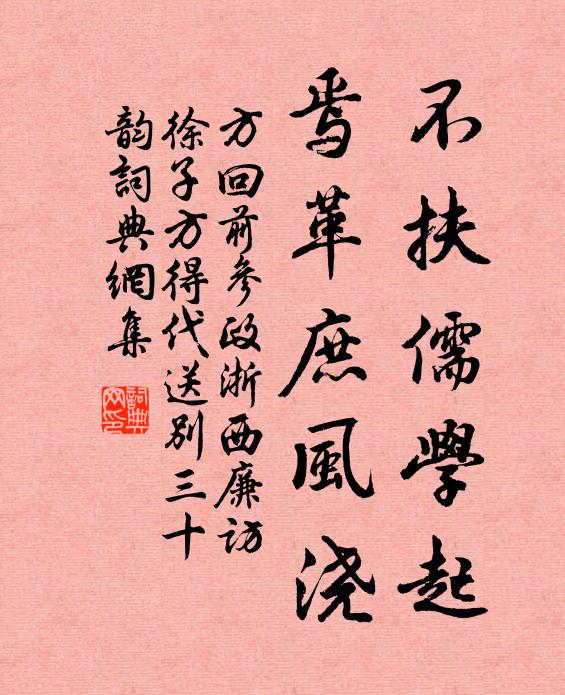 不扶儒學起
焉革庶風浇
方回前參政浙西廉访
徐子方得代送別三十
韵詞典網集
詞典网印